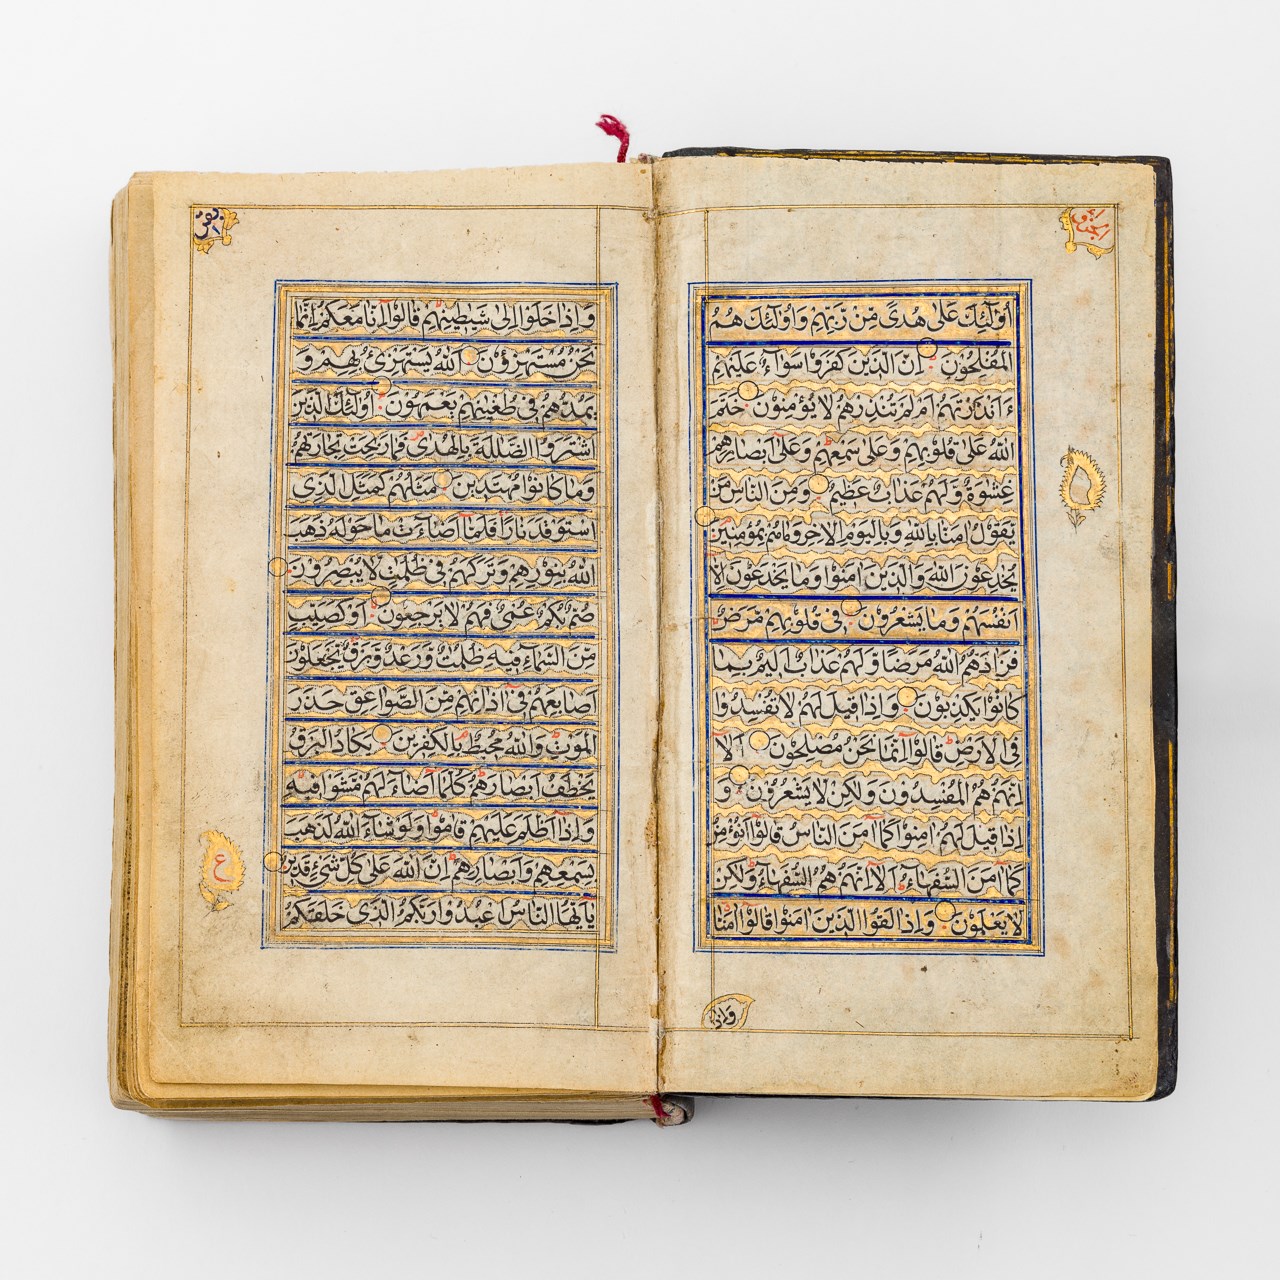 الجزو ١
أُولَٰئِكَ عَلَىٰ هُدًى مِّن رَّبِّهِمْ وَأُولَٰئِكَ هُمُ
الْمُفْلِحُونَ إِنَّ الَّذِينَ كَفَرُوا سَوَاءٌ عَلَيْهِمْ
ءَأَنذَرْتَهُمْ أَمْ لَمْ تُنذِرْهُمْ لَا يُؤْمِنُونَ خَتَمَ
اللَّهُ عَلَىٰ قُلُوبِهِمْ وَعَلَىٰ سَمْعِهِمْ وَعَلَىٰ أَبْصَارِهِمْ
غِشَاوَةٌ وَلَهُمْ عَذَابٌ عَظِيمٌ وَمِنَ النَّاسِ مَن
يَقُولُ آمَنَّا بِاللَّهِ وَبِالْيَوْمِ الْآخِرِ وَمَا هُم بِمُؤْمِنِينَ
يُخَادِعُونَ اللَّهَ وَالَّذِينَ آمَنُوا وَمَا يَخْدَعُونَ إِلَّا
أَنفُسَهُمْ وَمَا يَشْعُرُونَ فِي قُلُوبِهِم مَّرَضٌ
فَزَادَهُمُ اللَّهُ مَرَضًا وَلَهُمْ عَذَابٌ أَلِيمٌ بِمَا
كَانُوا يَكْذِبُونَ وَإِذَا قِيلَ لَهُمْ لَا تُفْسِدُوا
فِي الْأَرْضِ قَالُوا إِنَّمَا نَحْنُ مُصْلِحُونَ أَلَا
إِنَّهُمْ هُمُ الْمُفْسِدُونَ وَلَٰكِن لَّا يَشْعُرُونَ وَ
إِذَا قِيلَ لَهُمْ آمِنُوا كَمَا آمَنَ النَّاسُ قَالُوا أَنُؤْمِنُ
كَمَا آمَنَ السُّفَهَاءُ أَلَا إِنَّهُمْ هُمُ السُّفَهَاءُ وَلَٰكِن
لَّا يَعْلَمُونَ وَإِذَا لَقُوا الَّذِينَ آمَنُوا قَالُوا آمَنَّا
وَاِذَا
بقر
وَإِذَا خَلَوْا إِلَىٰ شَيَاطِينِهِمْ قَالُوا إِنَّا مَعَكُمْ إِنَّمَا
نَحْنُ مُسْتَهْزِءُونَ اللَّهُ يَسْتَهْزِئُ بِهِمْ وَ
يَمُدُّهُمْ فِي طُغْيَانِهِمْ يَعْمَهُونَ أُولَٰئِكَ الَّذِينَ
اشْتَرَوُا الضَّلَالَةَ بِالْهُدَىٰ فَمَا رَبِحَت تِّجَارَتُهُمْ
وَمَا كَانُوا مُهْتَدِينَ مَثَلُهُمْ كَمَثَلِ الَّذِي
اسْتَوْقَدَ نَارًا فَلَمَّا أَضَاءَتْ مَا حَوْلَهُ ذَهَبَ
اللَّهُ بِنُورِهِمْ وَتَرَكَهُمْ فِي ظُلُمَاتٍ لَّا يُبْصِرُونَ
صُمٌّ بُكْمٌ عُمْيٌ فَهُمْ لَا يَرْجِعُونَ أَوْ كَصَيِّبٍ
مِّنَ السَّمَاءِ فِيهِ ظُلُمَاتٌ وَرَعْدٌ وَبَرْقٌ يَجْعَلُونَ
أَصَابِعَهُمْ فِي آذَانِهِم مِّنَ الصَّوَاعِقِ حَذَرَ
الْمَوْتِ وَاللَّهُ مُحِيطٌ بِالْكَافِرِينَ يَكَادُ الْبَرْقُ
يَخْطَفُ أَبْصَارَهُمْ كُلَّمَا أَضَاءَ لَهُم مَّشَوْا فِيهِ
وَإِذَا أَظْلَمَ عَلَيْهِمْ قَامُوا وَلَوْ شَاءَ اللَّهُ لَذَهَبَ
بِسَمْعِهِمْ وَأَبْصَارِهِمْ إِنَّ اللَّهَ عَلَىٰ كُلِّ شَيْءٍ قَدِيرٌ
يَا أَيُّهَا النَّاسُ اعْبُدُوا رَبَّكُمُ الَّذِي خَلَقَكُمْ
ع